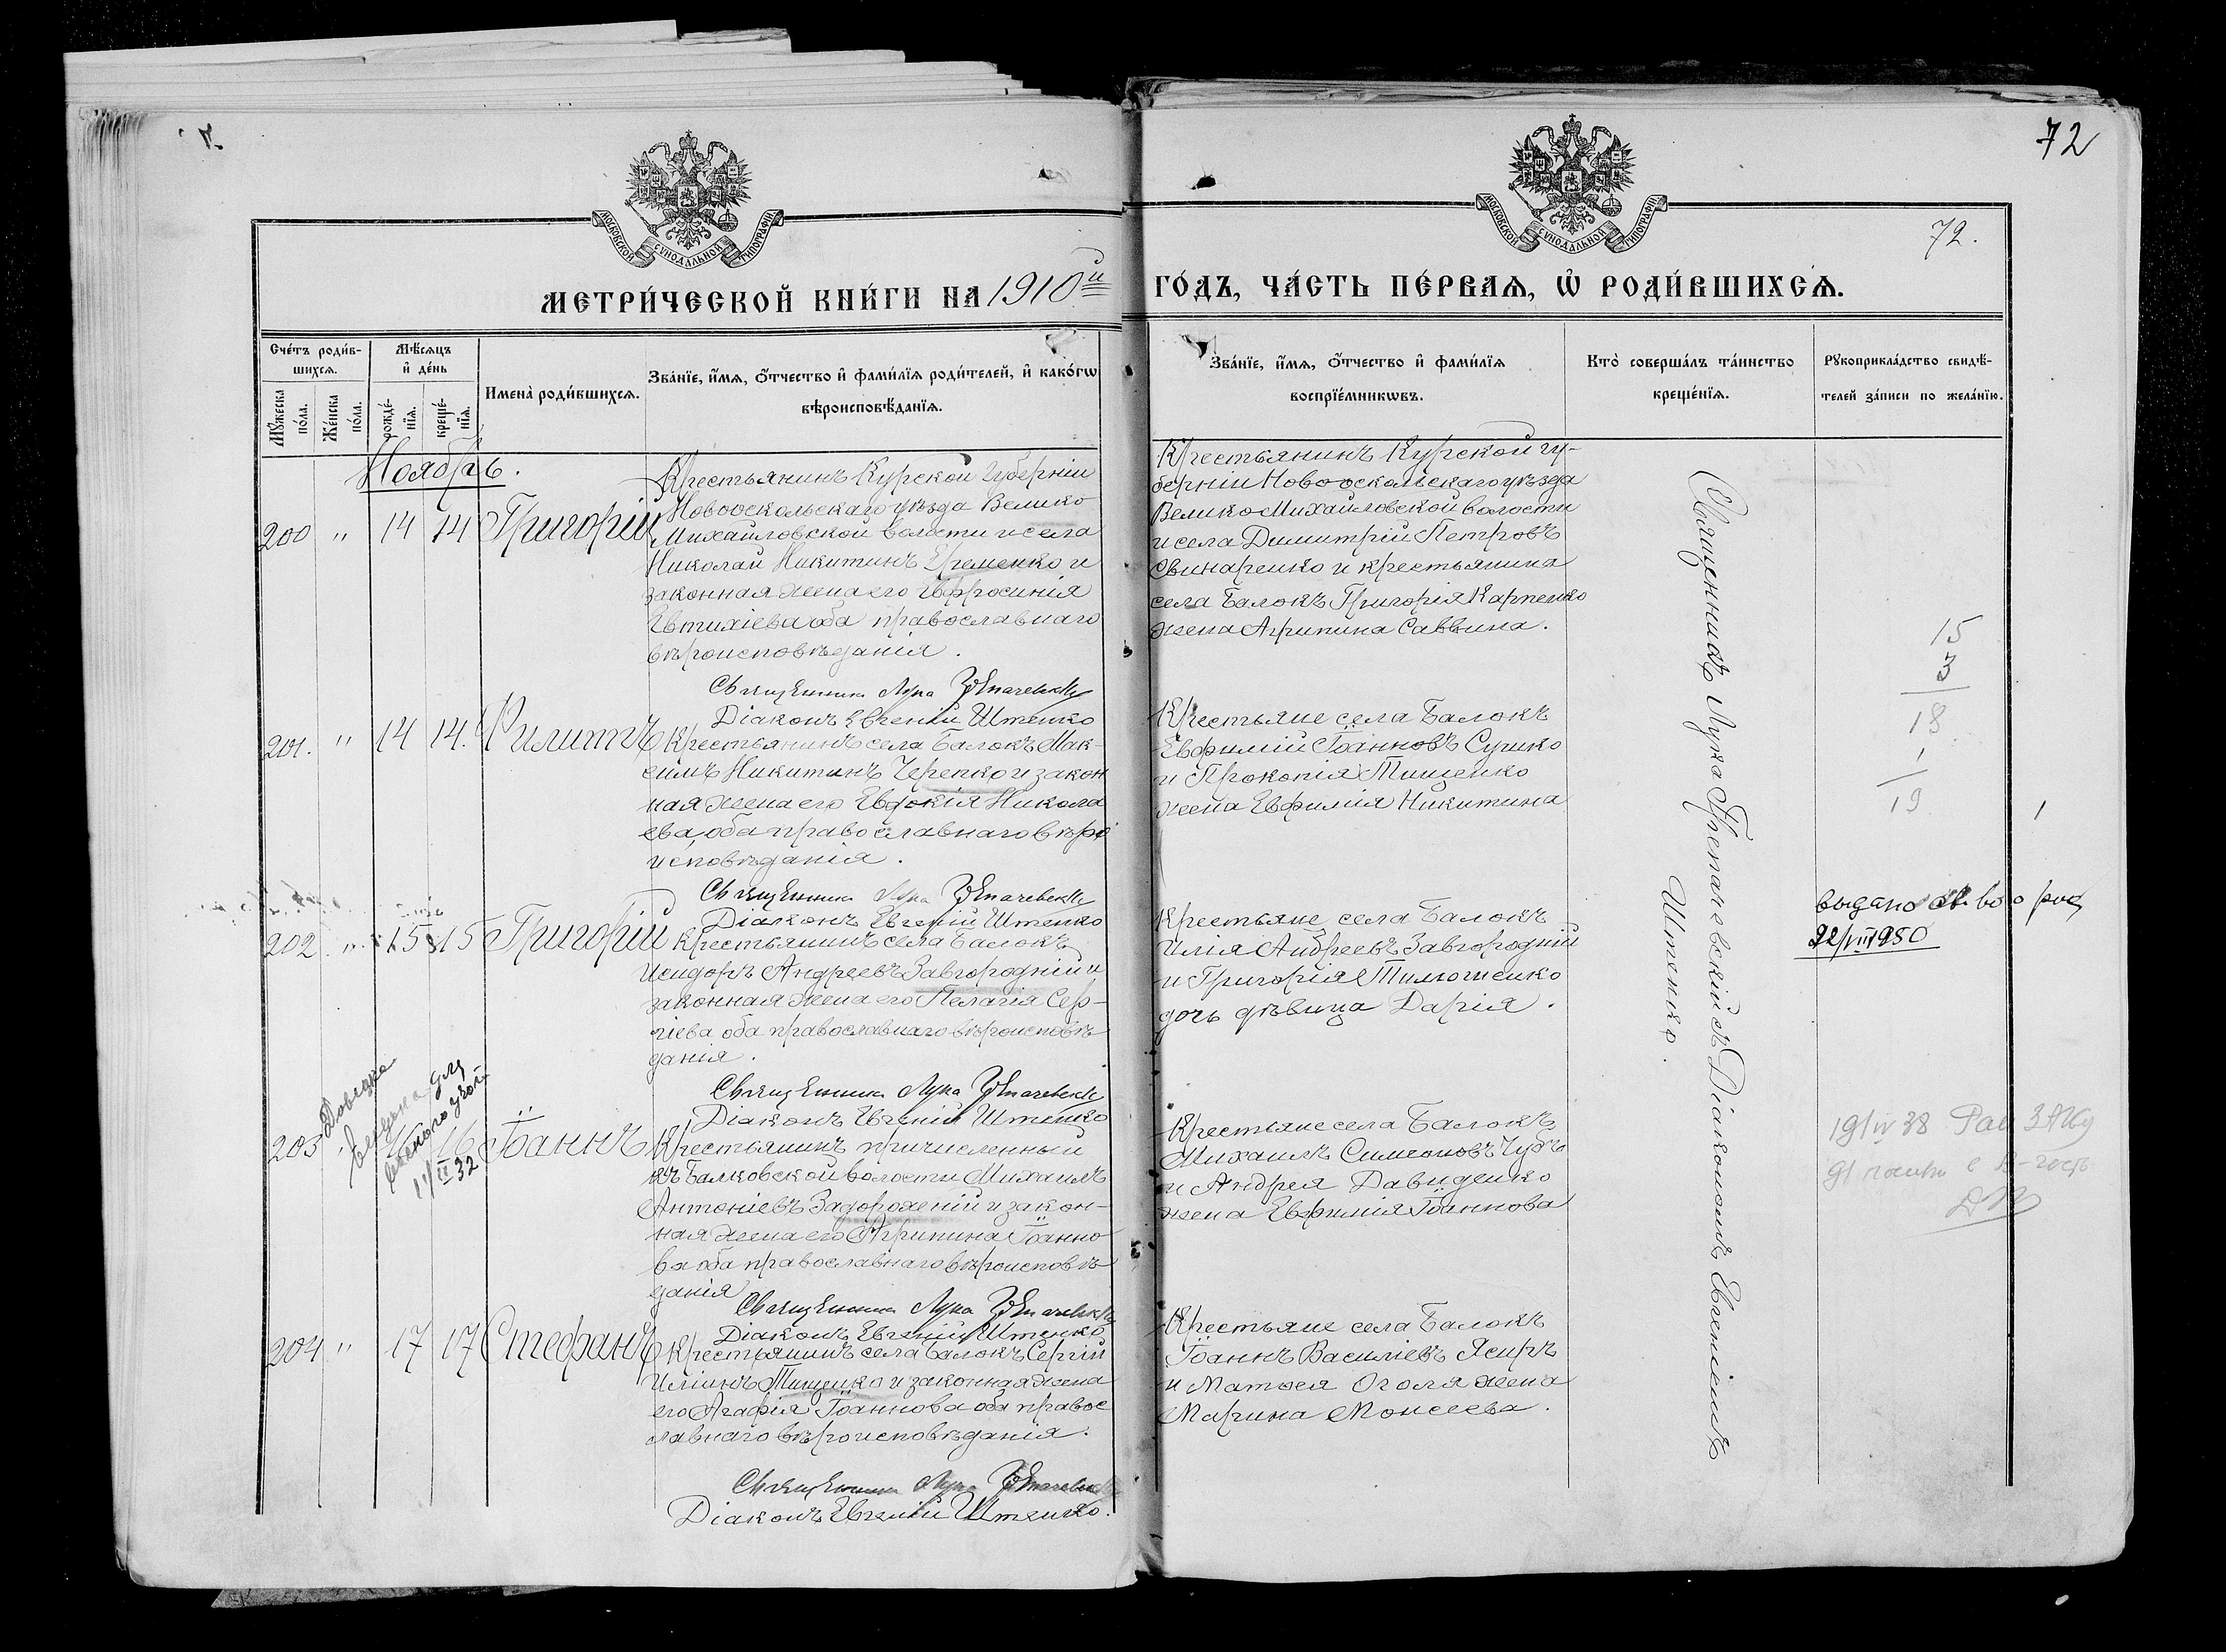 72
72.
МОСКОВСКОЙ СУНОДАЛЬНОЙ ТИПОГРАФІИ
МОСКОВСКОЙ СУНОДАЛЬНОЙ ТИПОГРАФІИ
МЕТРИ́ЧЕСКОЙ КНИ́ГИ НА 1910й ГО́ДЪ, ЧА́СТЬ ПЕ́РВАѦ, Ѡ РОДИ́ВШИХСѦ.
Сче́тъ роди́в-
шихсѧ.
Мꙋ́жеска по́ла.
Же́нска по́ла.
Мѣ́сѧцъ
и҆ де́нь
рожде́-
нїѧ.
креще́-
нїѧ.
Имена̀ роди́вшихсѧ.
Зва́нїе, и҆́мѧ, ѻ҆́тчество и҆ фами́лїѧ роди́телей, и҆ како́гѡ
вѣроисповѣ́данїѧ.
Зва́нїе, и҆́мѧ, ѻ҆́тчество и҆ фами́лїѧ
воспрїе́мникѡвъ.
Кто̀ соверша́лъ та́инство
креще́нїѧ.
Рꙋкоприкла́дство свидѣ́-
телей за́писи по жела́нїю.
Ноябрь.
200 " 14 14 Григорій
Крестьянинъ Курской Губерніи
Новооскольскаго уѣзда Велико
Михайловской волости и села
Николай Никитинъ Еременко и
законная жена его Евфросинія
Евтихіева оба православнаго
вѣроисповѣданія.
Священникъ Лука
Діаконъ Евгеній Штепко
Крестьянинъ Курской гу-
берніи Новооскольскаго уѣзда
Велико Михайловской волости
и села Димитрій Петровъ
Свинаренко и крестьянина
села Балокъ Григорія Карпенко
жена Агрипина Саввина.
201. " 14 14. Филиппъ
Крестьянинъ села Балокъ Мак-
симъ Никитинъ Черепко и закон
ная жена его Евдокія Никола
ева, оба православнаго вѣро
исповѣданія.
Священникъ Лука
Діаконъ Евгеній Штепко
Крестьяне села Балокъ
Евфимій Іоанновъ Сушко
и Прокопія Тищенко
жена Евфимія Никитина
202. " 15 15 Григорій
Крестьянинъ села Балокъ
Исидоръ Андреевъ Завгородній и
законная жена его Пелагія Сер-
гіева оба православнаго вѣроисповѣ
данія.
Священникъ Лука
Діаконъ Евгеній Штепко
Крестьяне села Балокъ
Илія Андреевъ Завгородній
и Григорія Тимошенко
дочь дѣвица Дарія.
203 " 16 16 Іоаннъ
Крестьянинъ причисленный
къ Балковской волости Михаилъ
Антоніевъ Задорожній и закон-
ная жена его Агрипина Іоанно
ва оба православнаго вѣроисповѣ
данія
Священникъ Лука
Діаконъ Евгеній Штепко
Крестьяне села Балокъ
Михаилъ Симеоновъ Чубъ
и Андрея Давиденко
жена Евфимія Іоаннова
204 " 17 17 Стефанъ
Крестьянинъ села Балокъ Сергій
Иліинъ Тищенко и законная жена
его Агафія Іоаннова оба правос
лавнаго вѣроисповѣданія.
Священникъ Лука
Діаконъ Евгеній Штепко.
Крестьяне села Балокъ
Іоаннъ Василіевъ Ясиръ
и Матѳея Оголя жена
Марина Моисеева.
Священникъ Лука съ Діакономъ Евгеніемъ
Штепко.
15
3
18
1
19
1
выдано св во о рож
22/VII 1950
Довидка
для
11/II 32
19/IV 38